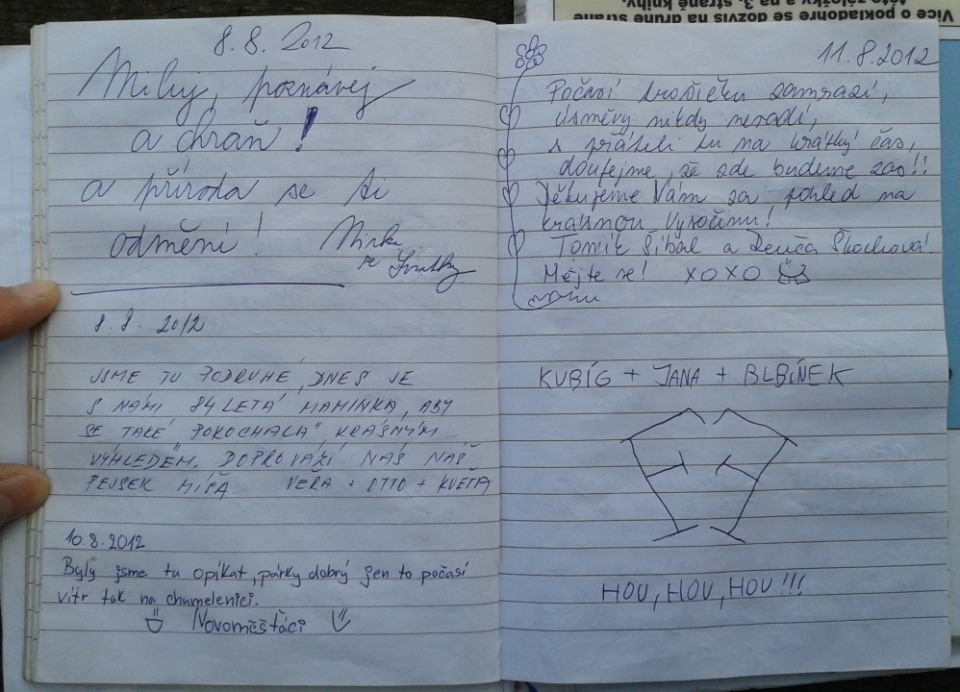 8.8. 2012
Miluj, poznávej
a chraň!
a příroda se ti
odmění! Mirka
ze Svratky
8.8. 2012
JSME TU PODRUHÉ, DNES JE
S NÁMI 84 LETÁ MAMINKA, ABY
SE TAKÉ „POKOCHALA" KRÁSNÝM
VÝHLEDEM. DOPROVÁZÍ NÁS NÁŠ
PEJSEK MÍŠA. VĚRA + OTTO + KVĚTA
10.8.2012
Byly jsme tu opíkat, párky dobrý jen to počasí
vítr tak na chumelenici.
Novoměšťáci
Více o pokladohře se dozvíš na druhé straně
této záložky a na 3. straně knihy.
11.8.2012
Počasí trošičku zamrazí,
úsměvy nikdy neradí,
s přáteli tu na krátký čas,
doufejme, že zde budeme zas!!
Děkujeme Vám za pohled na
krásnou Vysočinu!
Tomík Šibal a Renča Škochová!
Mějte se! XOXO
KUBÍG + JANA + BLBÍNEK
HOU, HOU, HOU!!!